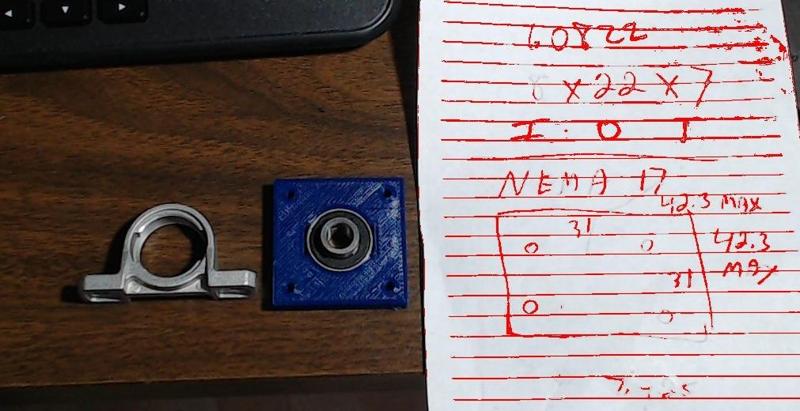 60822
8 X 22 X 7
I. O T
NEMA 17
42.3 MAX
31
42.3
MAX
31